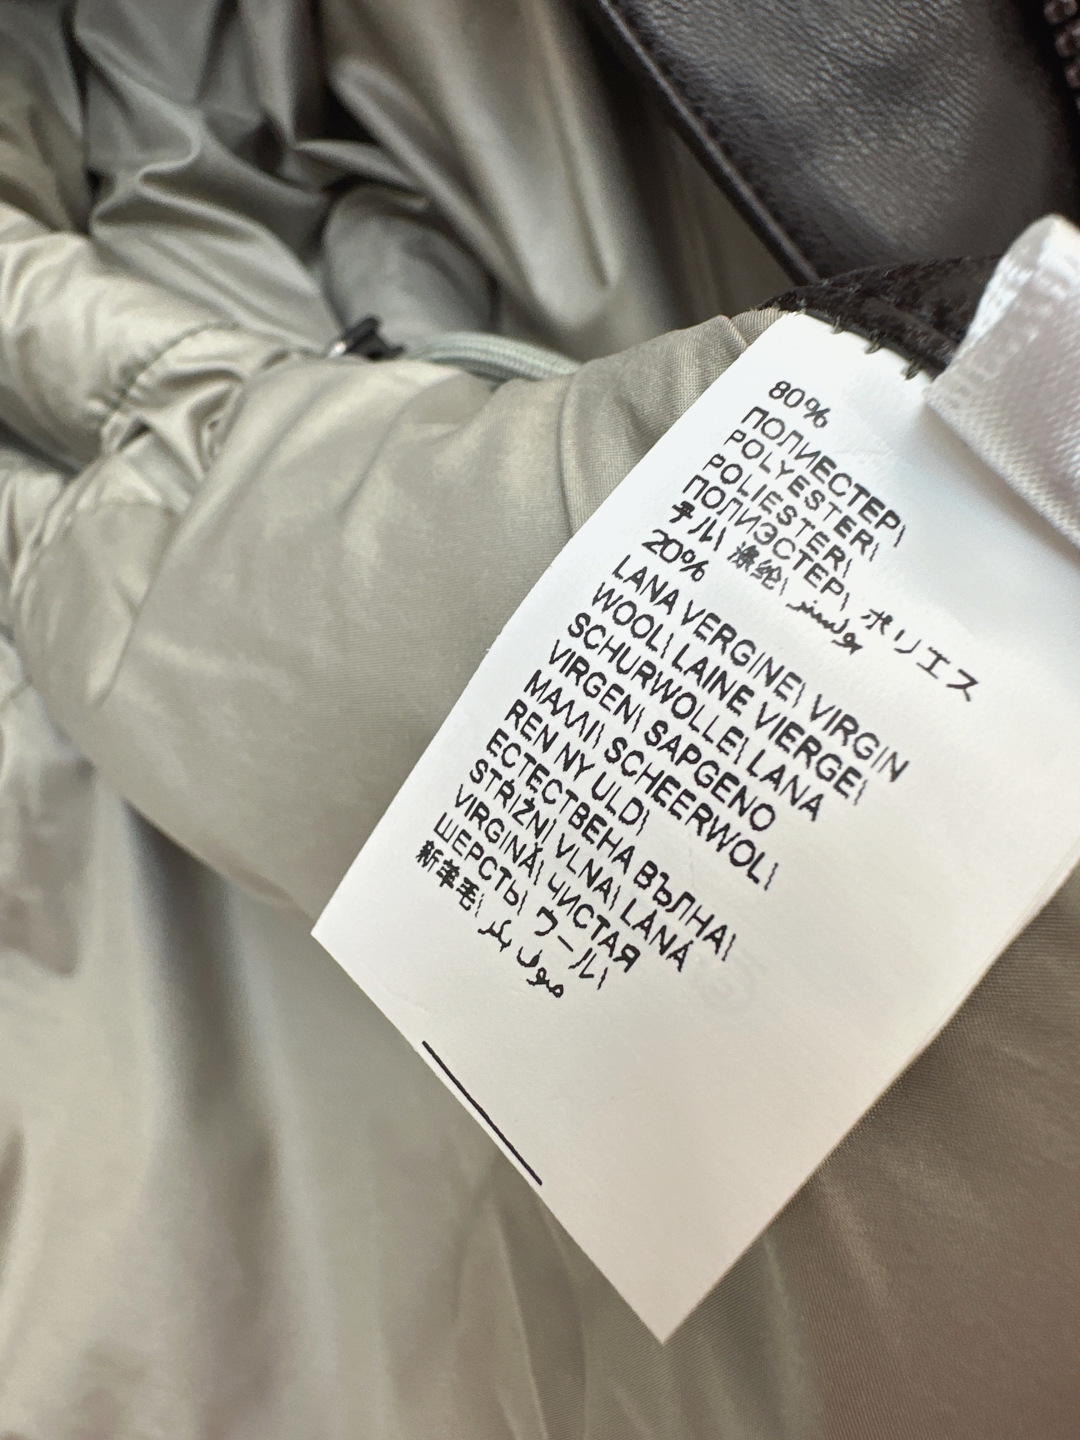 80%
ПОЛИЕСТЕР\
POLYESTER\
POLIESTER\
ПОЛИЭСТЕР\ ポリエス
テル\ 涤纶\ بولستر
20%
LANA VERGINE\ VIRGIN
WOOL\ LAINE VIERGE\
SCHURWOLLE\ LANA
VIRGEN\ SAPGENO
MAΛΛI\ SCHEERWOL\
REN NY ULD\
ЕСТЕСТВЕНА ВЪЛНА\
STŘIŽNÍ VLNA\ LÂNĂ
VIRGINĂ\ ЧИСТАЯ
ШЕРСТЬ\ ウール\
新羊毛\ صوف بكر